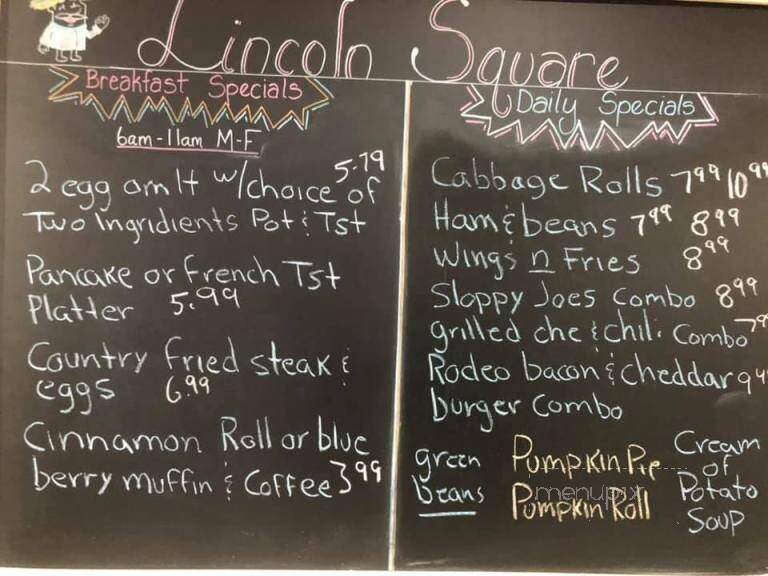 Lincoln Square
Breakfast Specials
6am-11am M-F
2 egg omlt w/choice of 5.79
Two Ingridients Pot & Tst
Pancake or French Tst
Platter 5.99
Country fried steak &
eggs 6.99
Cinnamon Roll or blue
berry muffin & Coffee 3.99
Daily Specials
Cabbage Rolls 7.99 10.99
Ham & beans 7.99 8.99
Wings n Fries 8.99
Sloppy Joes Combo 8.99
grilled che & chili Combo
Rodeo bacon & cheddar
burger Combo
green
beans
Pumpkin Pie
Pumpkin Roll
Cream
of
Potato
Soup
menupix